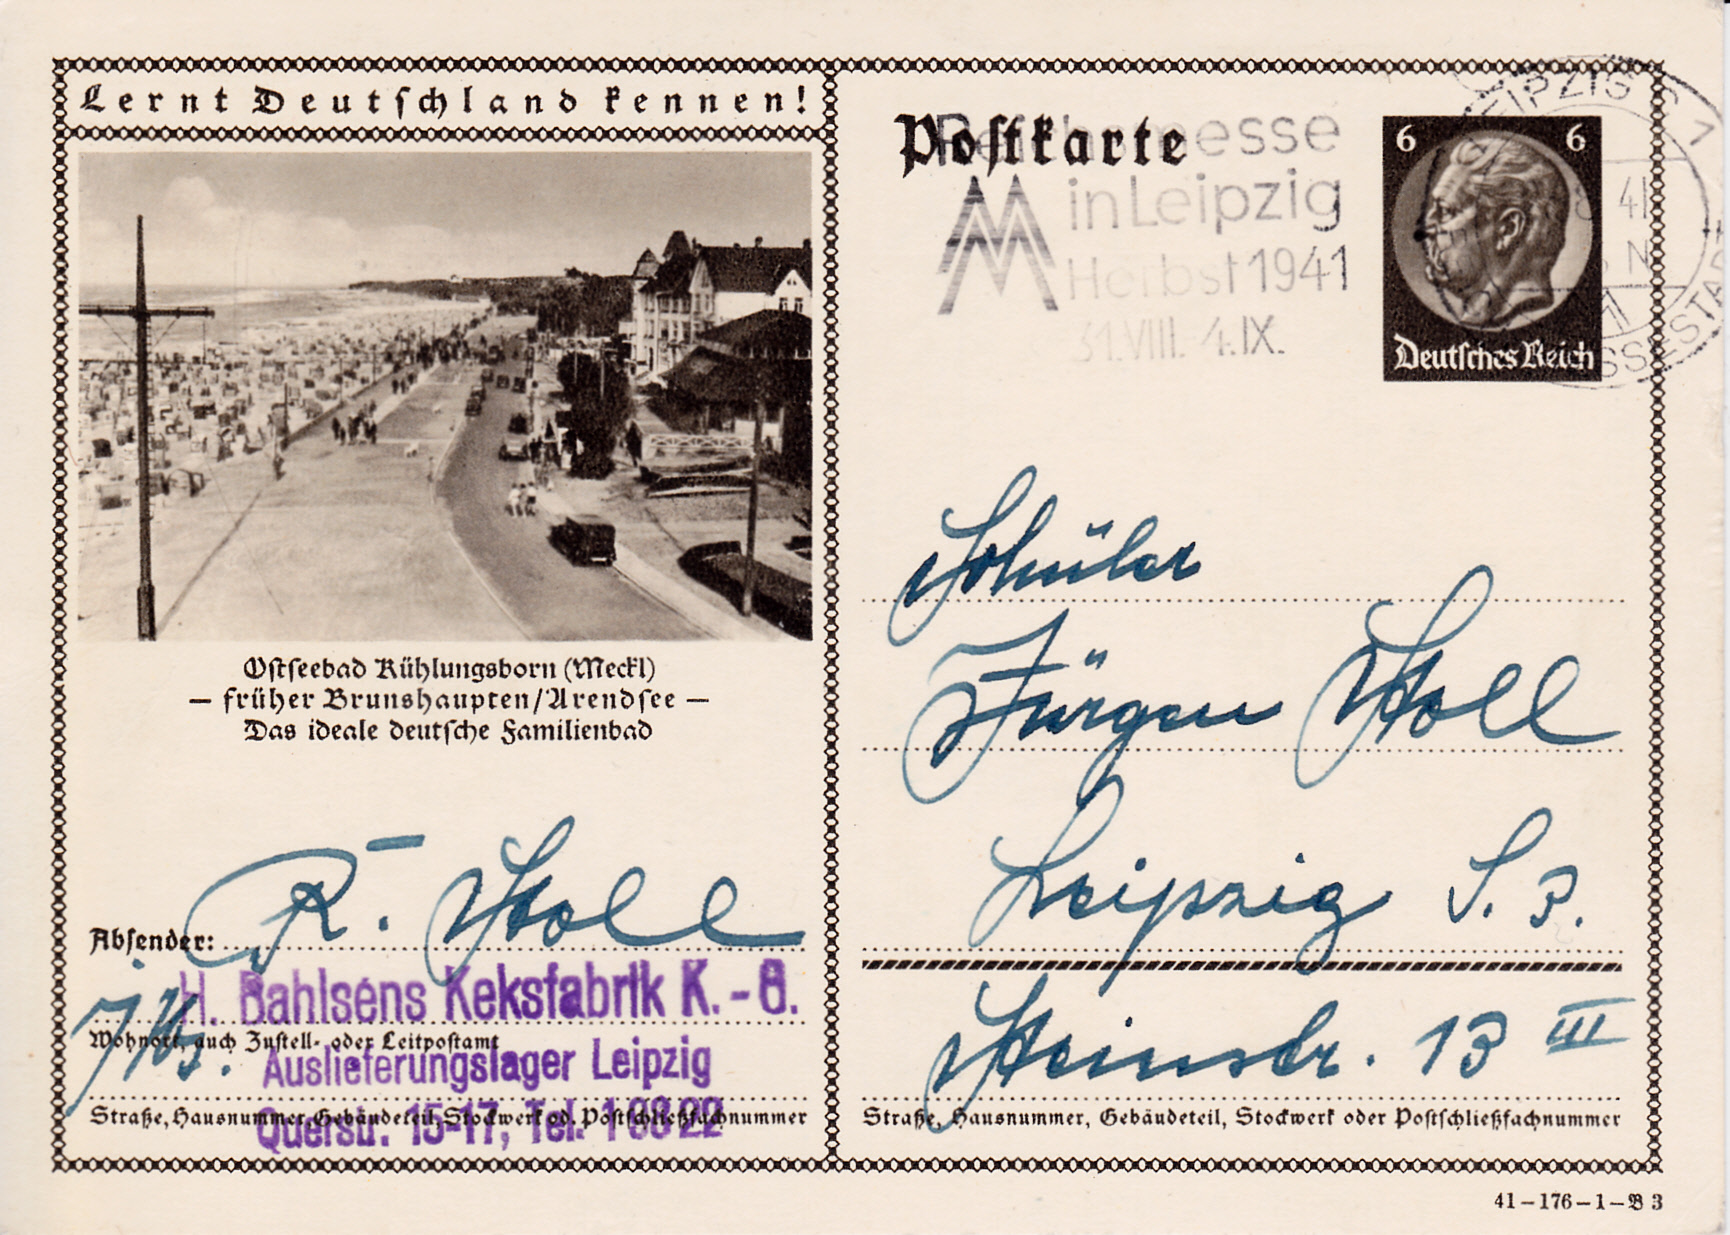 Lernt Deutschland kennen!
Ostseebad Kühlungsborn (Meckl)
— früher Brunshaupten/Arendsee —
Das ideale deutsche Familienbad
R. Stoll
Absender:
i/Fa.
H. Bahlsens Keksfabrik K.-G.
Wohnort, auch Zustell- oder Leitpostamt
Auslieferungslager Leipzig
Straße, Hausnummer, Gebäudeteil, Stockwerk od. Postschließfachnummer
Querstr. 15-17, Tel.
Postkarte
Reichsmesse
in Leipzig
Herbst 1941
31.VIII.-4.IX.
LEIPZIG C 1
41
N
MESSESTADT
6 6
Deutsches Reich
Schüler
Jürgen Stoll
Leipzig S. 3.
Steinstr. 13 III
Straße, Hausnummer, Gebäudeteil, Stockwerk oder Postschließfachnummer
41-176-1-B 3